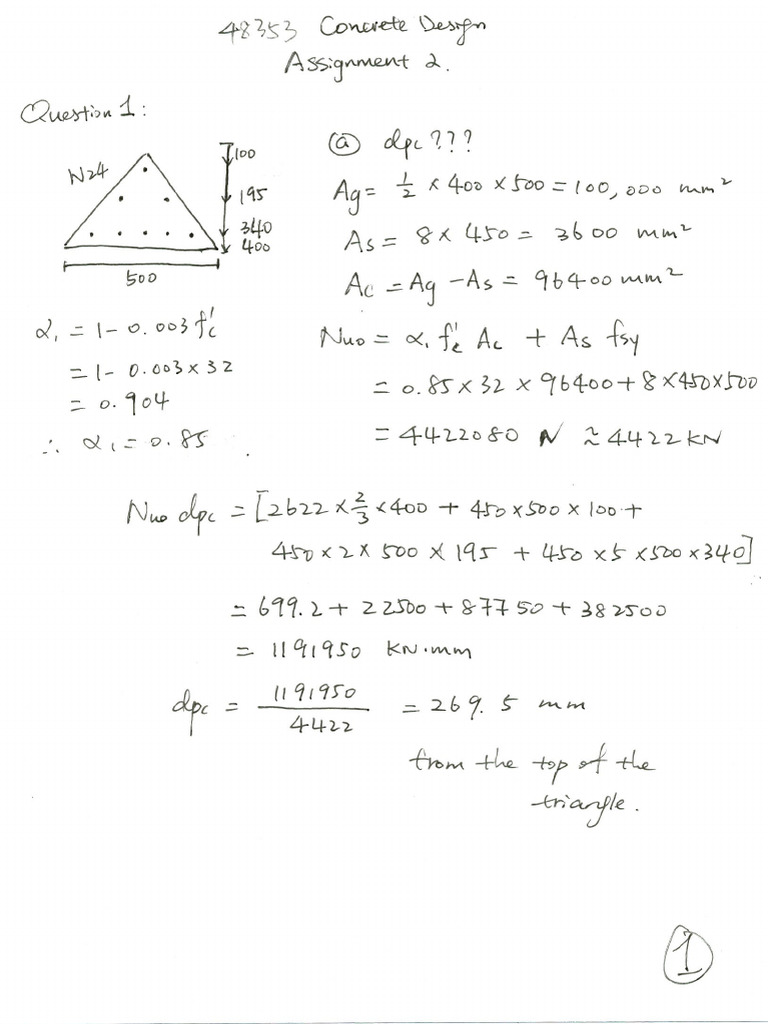 48353 Concrete Design
Assignment 2.
Question 1:
N24
100
195
340
400
500
ⓐ dpc???
Ag = 1/2 × 400 × 500 = 100,000 mm²
As = 8 × 450 = 3600 mm²
Ac = Ag - As = 96400 mm²
α₁ = 1 - 0.003 f'c
= 1 - 0.003 × 32
= 0.904
∴ α₁ = 0.85
Nuo = α₁ f'c Ac + As fsy
= 0.85 × 32 × 96400 + 8 × 450 × 500
= 4422080 N ≈ 4422 kN
Nuo dpc = [2622 × 2/3 × 400 + 450 × 500 × 100 +
450 × 2 × 500 × 195 + 450 × 5 × 500 × 340]
= 699.2 + 22500 + 87750 + 382500
= 1191950 kN·mm
dpc = 1191950 / 4422 = 269.5 mm
from the top of the
triangle.
1